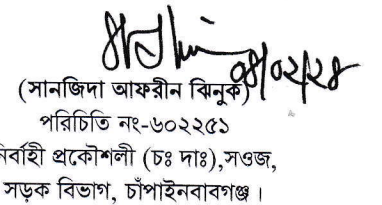 ০৪/০২/২৪
(সানজিদা আফরীন ঝিনুক)
পরিচিতি নং-৬০২২৫১
নির্বাহী প্রকৌশলী (চঃ দাঃ),সওজ,
সড়ক বিভাগ, চাঁপাইনবাবগঞ্জ ।